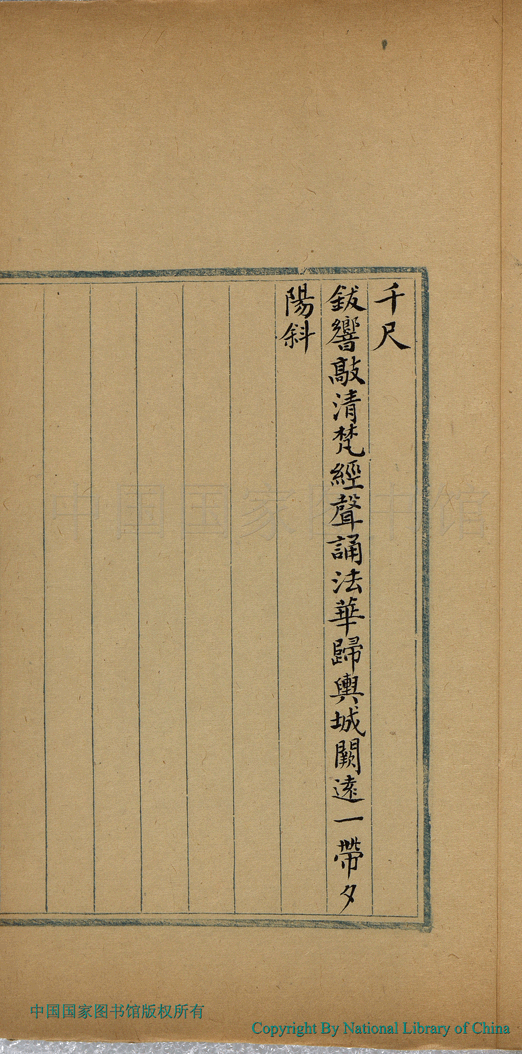 千尺
鈸響敲清梵經聲誦法華歸輿城闕遠一帶夕
陽斜
中国国家图书馆
中国国家图书馆版权所有
Copyright By National Library of China